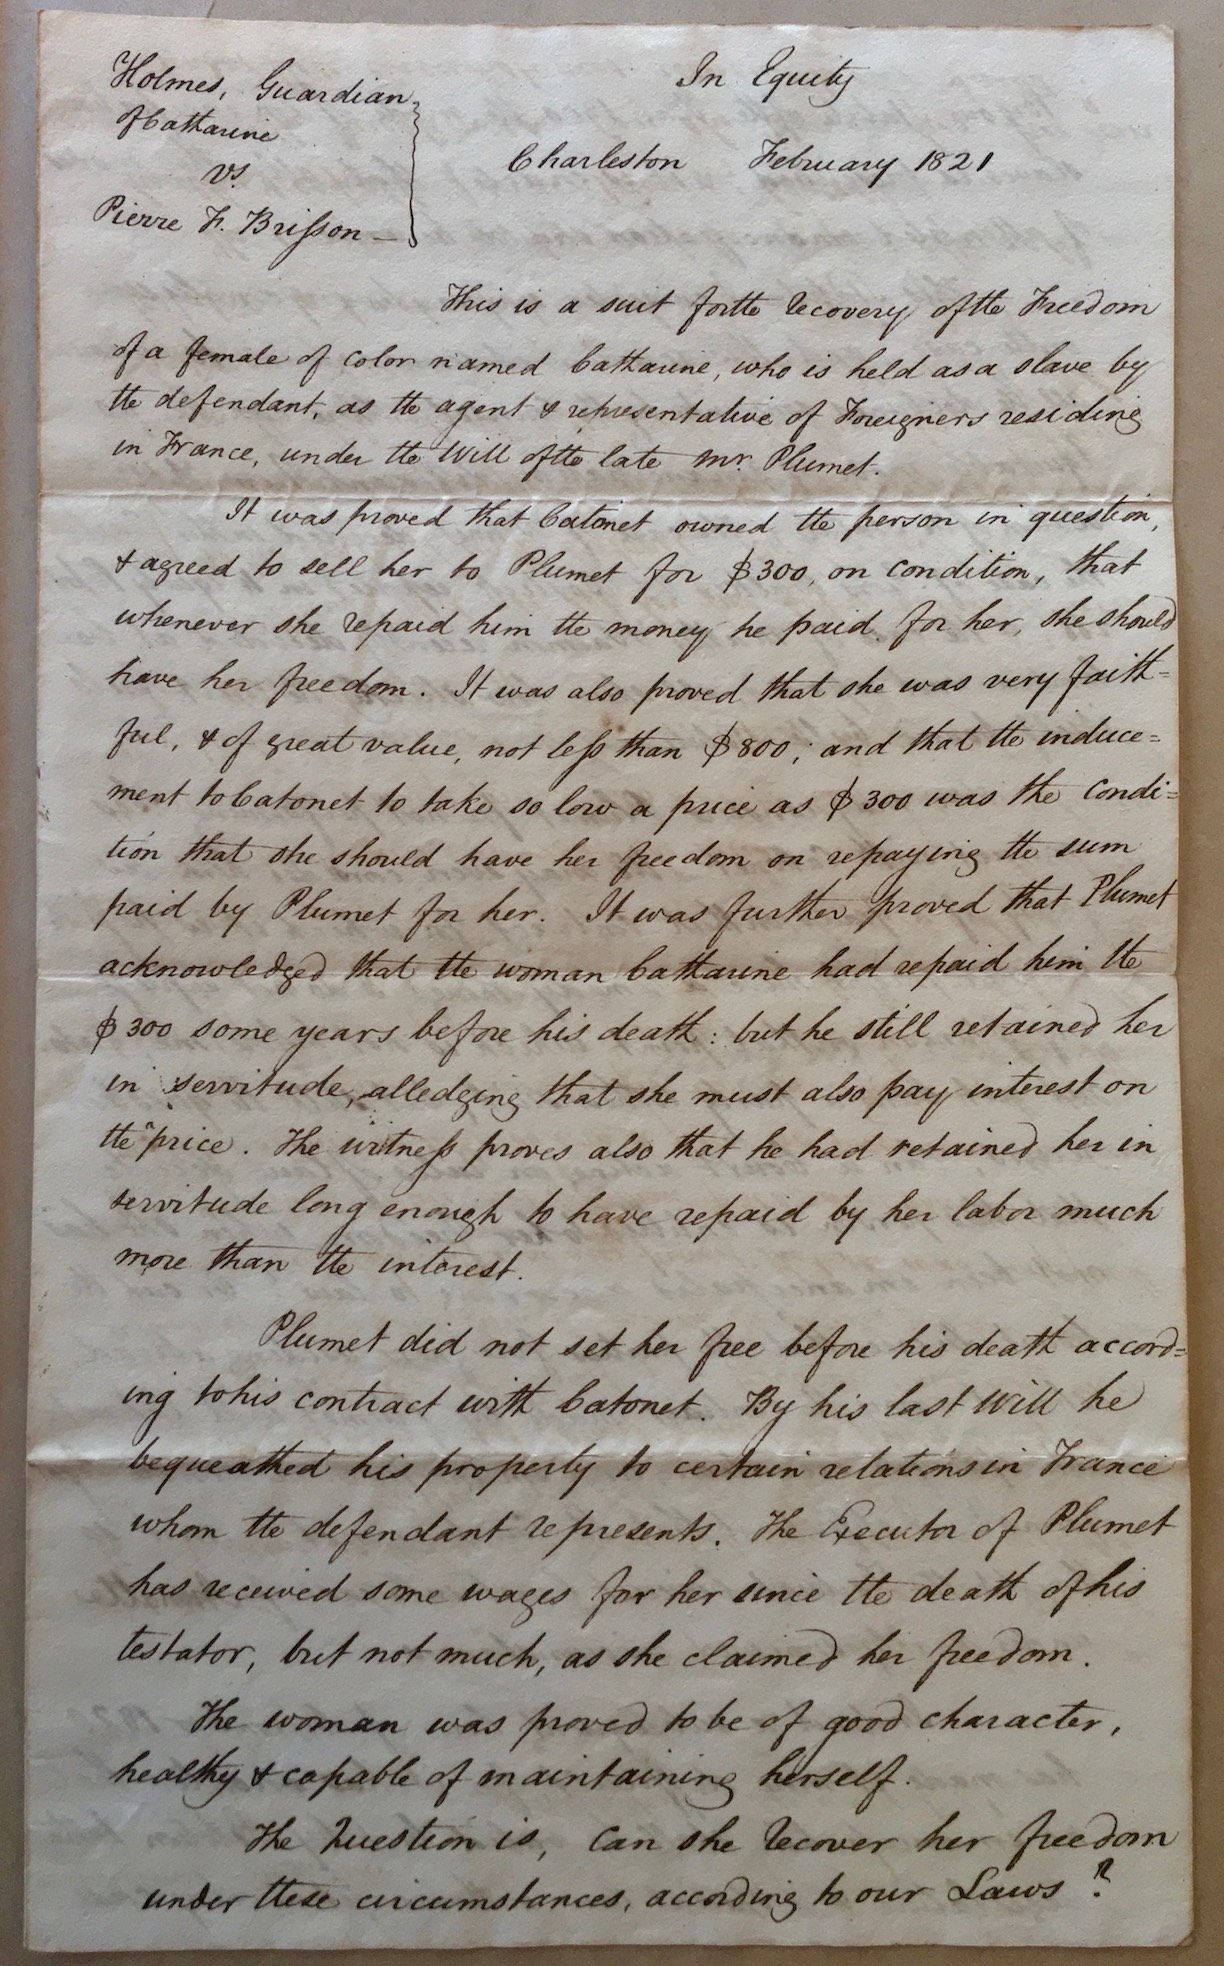 Holmes, Guardian
of Catharine
vs.
Pierre F. Brisson —
In Equity
Charleston February 1821
This is a suit for the recovery of the Freedom
of a female of color named Catharine, who is held as a slave by
the defendant, as the agent & representative of Foreigners residing
in France, under the Will of the late Mr. Plumet.
It was proved that Catonet owned the person in question,
& agreed to sell her to Plumet for $300, on condition, that
whenever she repaid him the money he paid for her, she should
have her freedom. It was also proved that she was very faith=
ful, & of great value, not less than $800; and that the induce=
ment to Catonet to take so low a price as $300 was the condi=
tion that she should have her freedom on repaying the sum
paid by Plumet for her. It was further proved that Plumet
acknowledged that the woman Catharine had repaid him the
$300 some years before his death: but he still retained her
in servitude, alledging that she must also pay interest on
the price. The witness proves also that he had retained her in
servitude long enough to have repaid by her labor much
more than the interest.
Plumet did not set her free before his death accord=
ing to his contract with Catonet. By his last Will he
bequeathed his property to certain relations in France
whom the defendant represents. The Executor of Plumet
has received some wages for her since the death of his
testator, but not much, as she claimed her freedom.
The woman was proved to be of good character,
healthy & capable of maintaining herself.
The Question is, Can she recover her freedom
under these circumstances, according to our Laws?